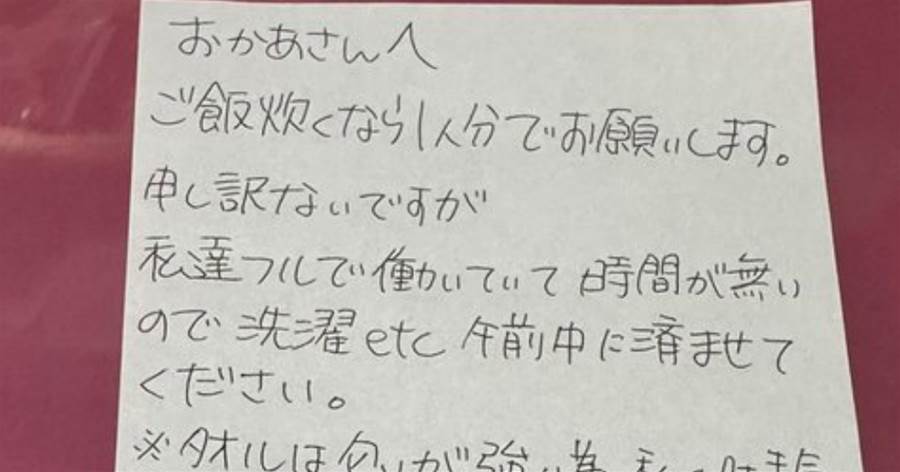 おかあさんへ
ご飯炊くなら1人分でお願いします。
申し訳ないですが
私達フルで働いていて時間が無い
ので洗濯etc午前中に済ませて
ください。
※タオルは匂いが強い為